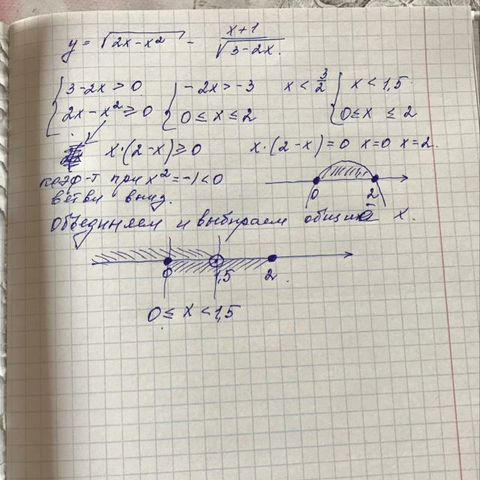 y = √(2x-x²) - (x+1)/√(3-2x).
{ 3-2x>0 { -2x>-3 x<3/2 { x<1,5
{ 2x-x²≥0 { 0≤x≤2 { 0≤x≤2
x·(2-x)≥0 x·(2-x)=0 x=0 x=2.
коэф-т при x²=-1<0
ветви вниз.
0 2
Объединяем и выбираем общий x.
0 1,5 2
0≤x<1,5